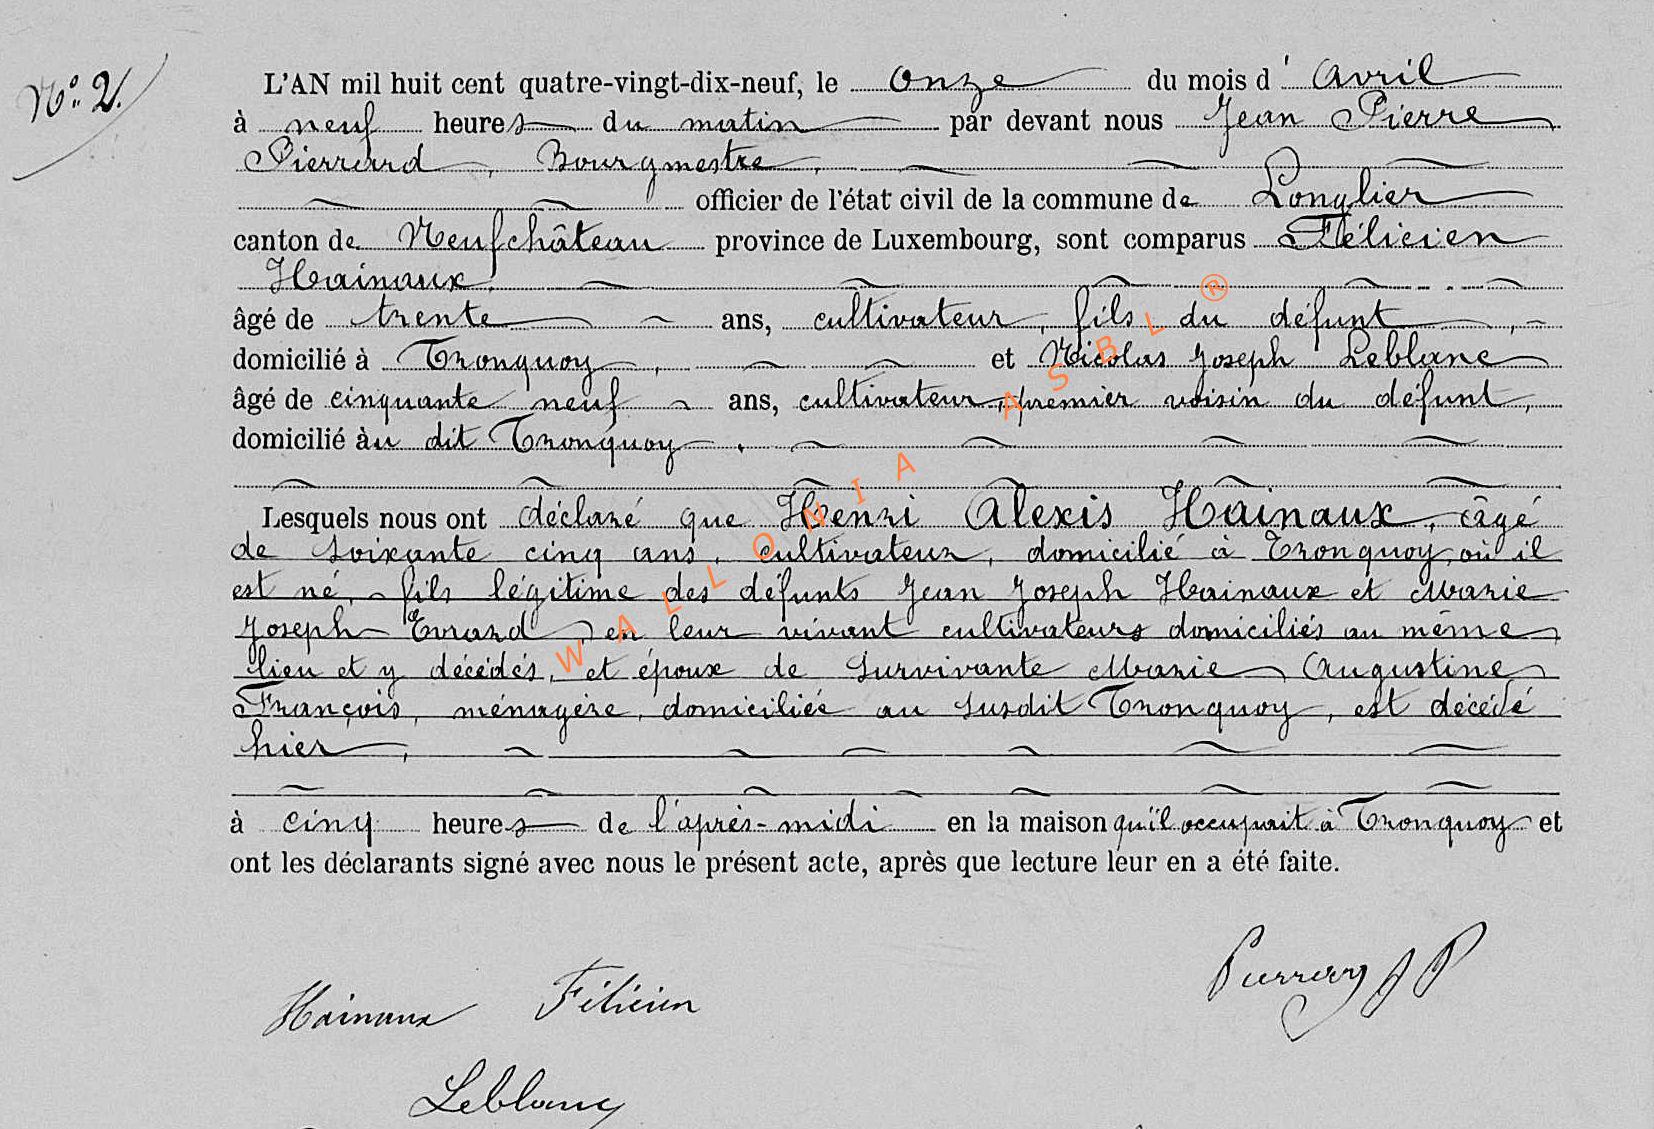 N° 2.
L'AN mil huit cent quatre-vingt-dix-neuf, le onze du mois d'Avril
à neuf heures du matin par devant nous Jean Pierre
Pierrard, Bourgmestre,
officier de l'état civil de la commune de Longlier
canton de Neufchâteau province de Luxembourg, sont comparus Félicien
Hainaux
âgé de trente ans, cultivateur, fils du défunt,
domicilié à Tronquoy, et Nicolas Joseph Leblanc
âgé de cinquante neuf ans, cultivateur, premier voisin du défunt,
domicilié àu dit Tronquoy.
Lesquels nous ont déclaré que Henri Alexis Hainaux, âgé
de soixante cinq ans, cultivateur, domicilié à Tronquoy, où il
est né, fils légitime des défunts Jean Joseph Hainaux et Marie
Joseph Evrard, en leur vivant cultivateurs domiciliés au même
lieu et y décédés, et époux de survivante Marie Augustine
François, ménagère, domiciliée au susdit Tronquoy, est décédé
hier,
à cinq heures de l'après-midi en la maison qu'il occupait à Tronquoy et
ont les déclarants signé avec nous le présent acte, après que lecture leur en a été faite.
Hainaux Félicien
Pierrard J P
Leblanc
WALLONIA ASBL ®